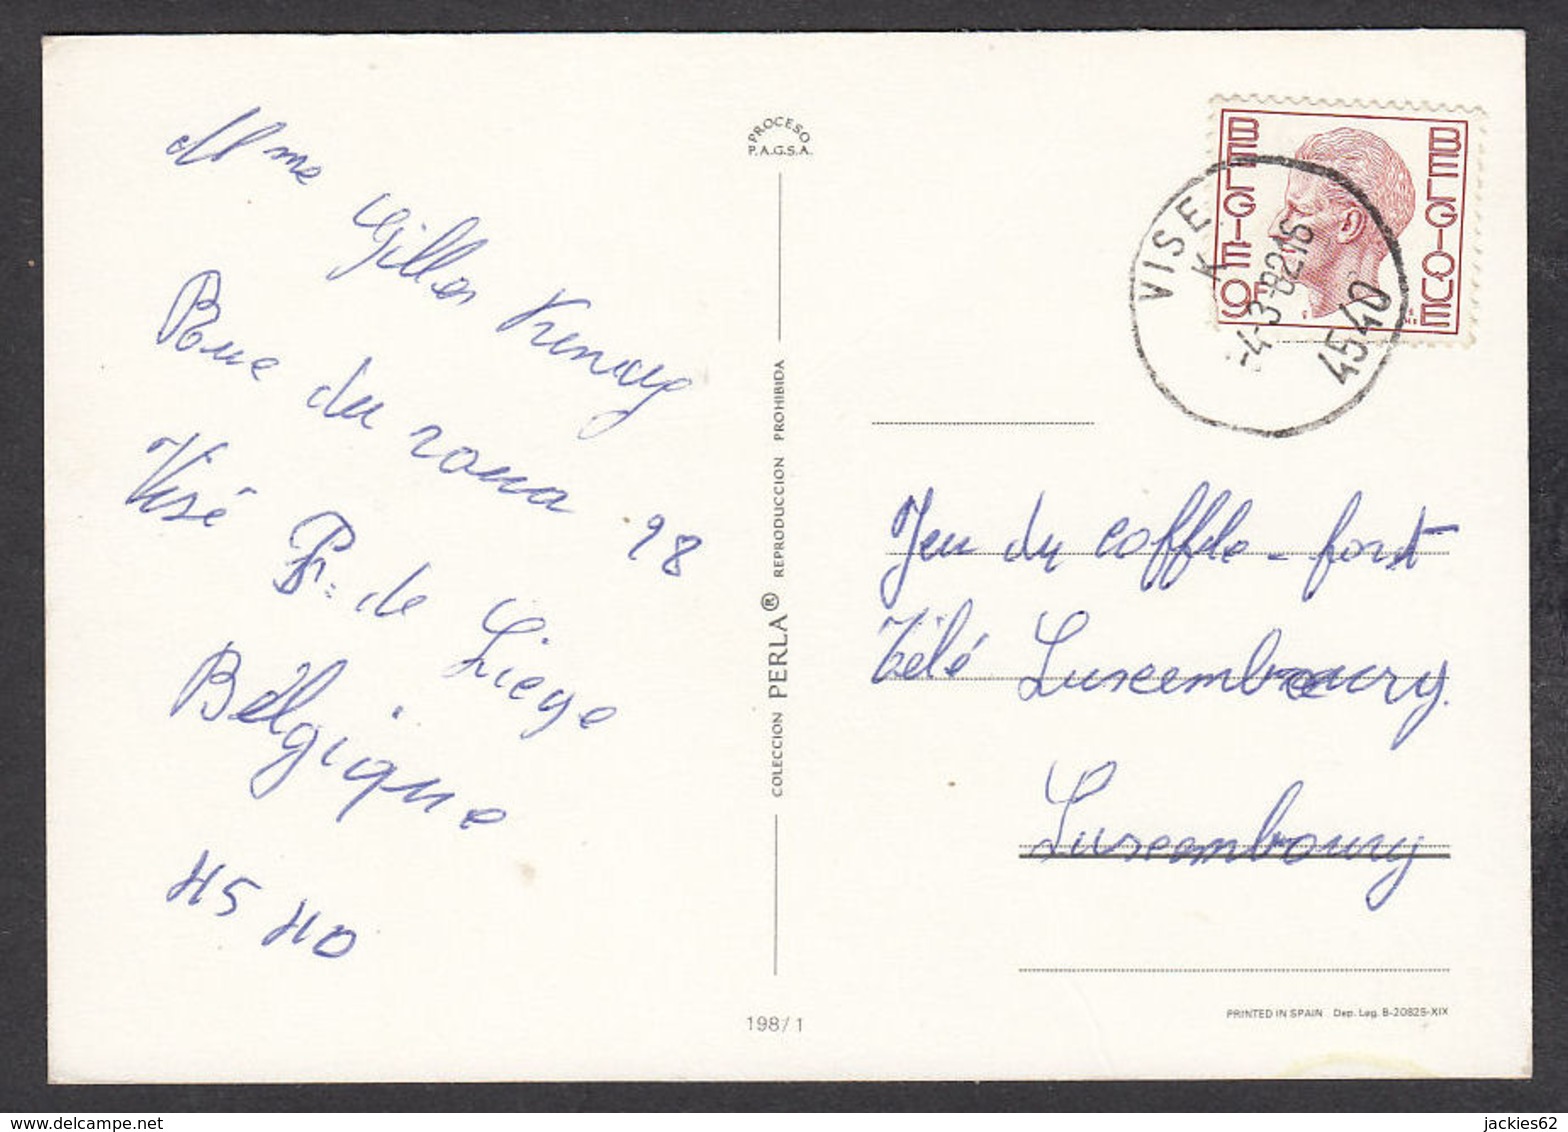 Mme
Gilles
Rue du roma 98
Visé Pr. de Liege
Bélgique
4540
PROCESO
P.A.G.S.A.
COLECCION PERLA® REPRODUCCION PROHIBIDA
198/1
BELGIE 9F
BELGIQUE
VISE
K
-4-3-82 16
4540
Jeu du coffle-fort
Télé Luxembourg.
Luxembourg
PRINTED IN SPAIN Dep. Leg. B-20825-XIX
delcampe.net
jackies62